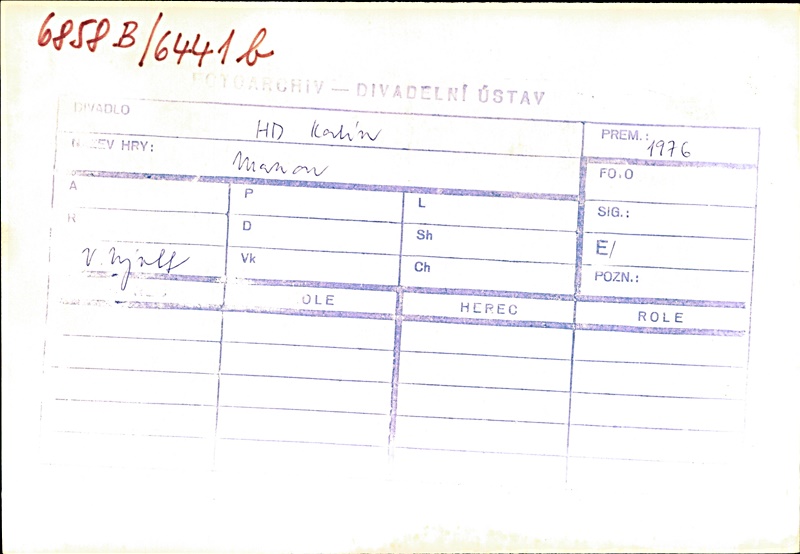 6858 B/6441 b
FOTOARCHIV — DIVADELNÍ ÚSTAV
DIVADLO HD Karlín PREM.: 1976
NÁZEV HRY: Manon FOTO
A P L SIG.:
R D Sh E/
Vk Ch POZN.:
ROLE HEREC ROLE